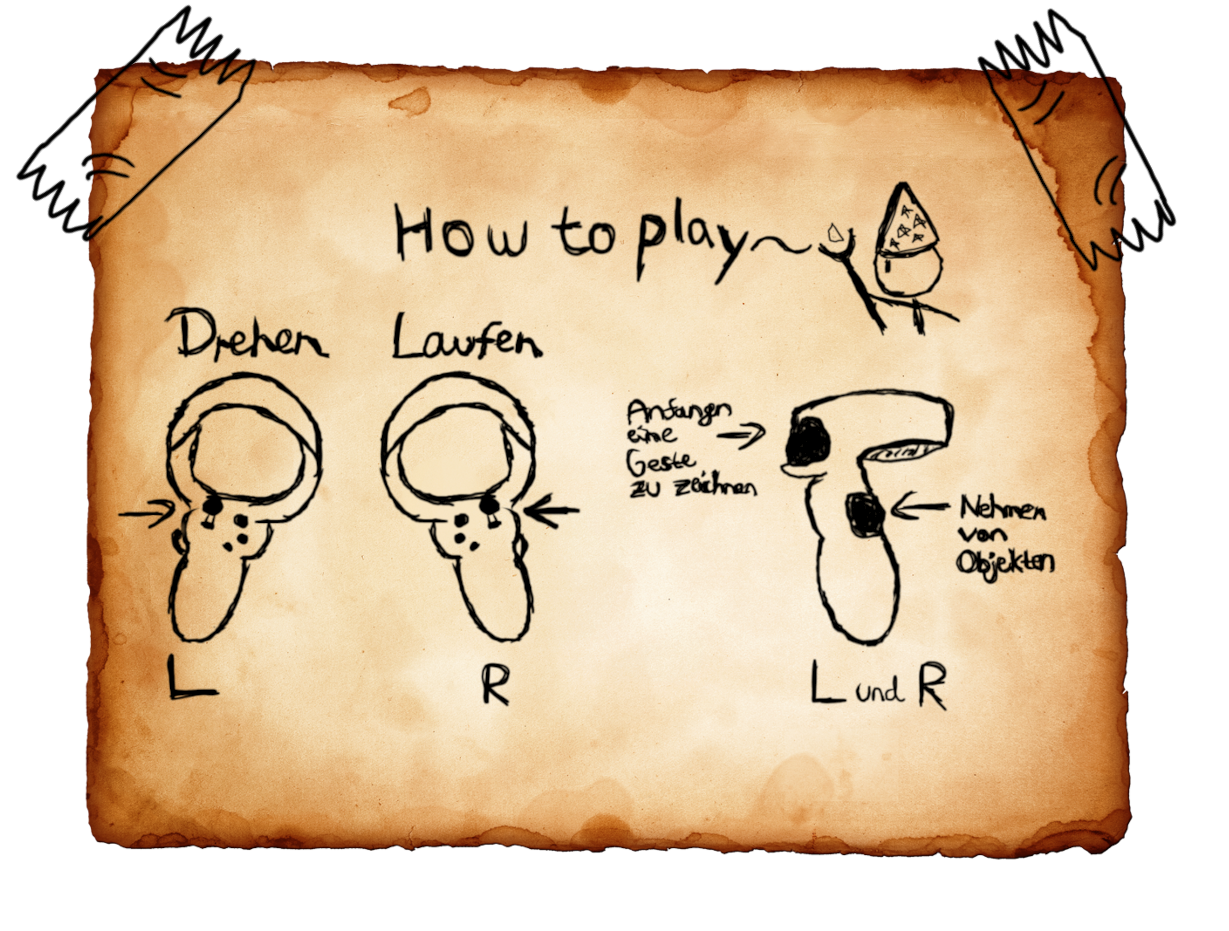 How to play~
Drehen
Laufen
Anfangen
eine
Geste
zu zeichnen
Nehmen
von
Objekten
L
R
L und R